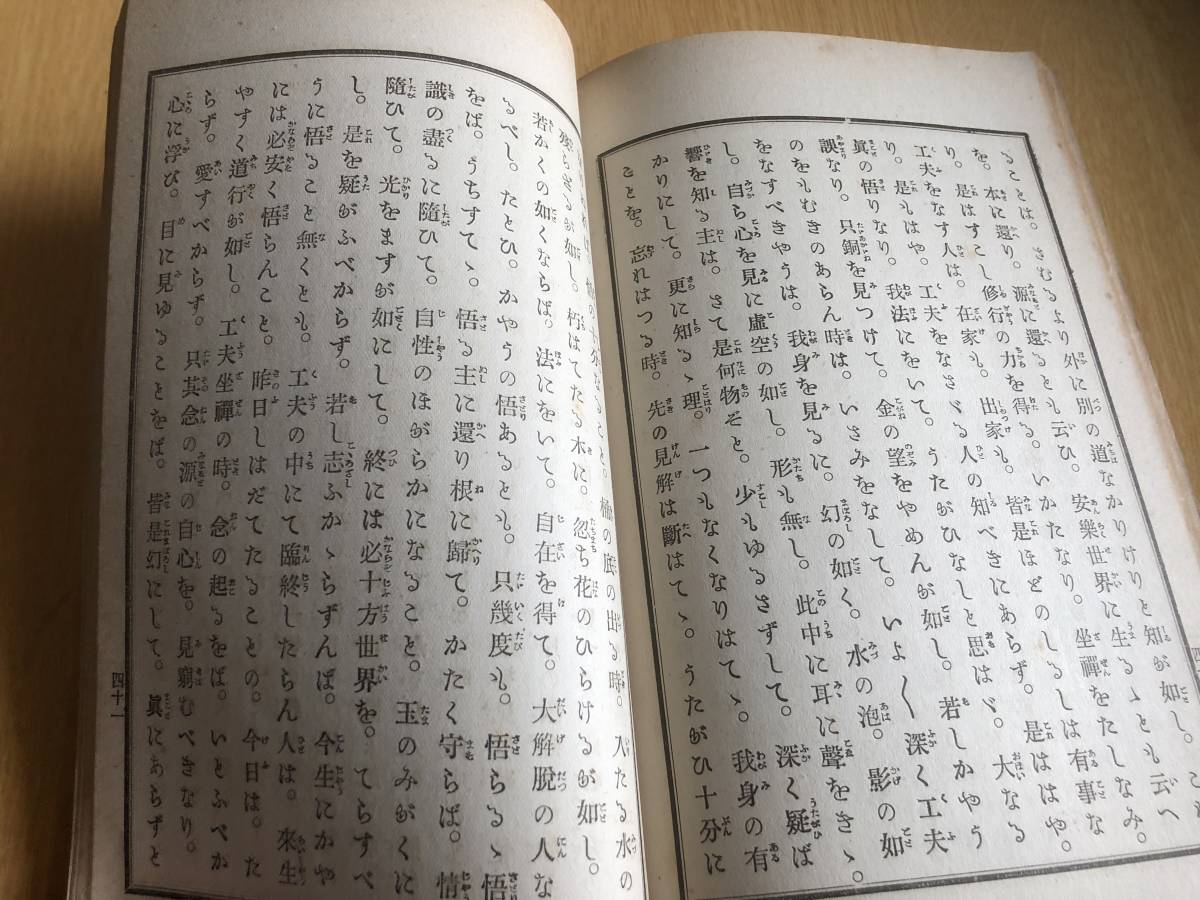 ることは。さむるより外に別の道なかりけりと知が如し。
を。本に還り。源に還るとも云ひ。安樂世界に生るゝとも云へ
り。是はすこし修行の力を得る。いかたなり。坐禪をたしなみ。
工夫をなす人は。在家も。出家も。皆是ほどのしるしは有事な
り。是もはや。工夫をなさゞる人の知べきにあらず。是ははや。
眞の悟りなり。我法にをいて。うたがひなしと思はゞ。大なる
誤なり。只銅を見つけて。金の望をやめんが如し。若しかやう
のをもむきのあらん時は。いさみをなして。いよ〳〵深く工夫
をなすべきやうは。我身を見るに。幻の如く。水の泡。影の如
し。自ら心を見に虚空の如し。形も無し。此中に耳に聲をきゝ。
響を知る主は。さて是何物ぞと。少もゆるさずして。深く疑ば
かりにして。更に知るゝ理。一つもなくなりはてゝ。我身の有
ことを。忘れはつる時。先の見解は斷はてゝ。うたがひ十分に
の十分なる 桶の底の出る時。入たる水の
殘らざるが如し。朽はてたる木に。忽ち花のひらけるが如し。
若かくの如くならば。法にをいて。自在を得て。大解脱の人な
るべし。たとひ。かやうの悟あるとも。只幾度も。悟らるゝ悟
をば。うちすてゝ。悟る主に還り根に歸て。かたく守らば。情
識の盡るに隨ひて。自性のほがらかになること。玉のみがくに
隨ひて。光をますが如にして。終には必十方世界を。てらすべ
し。是を疑がふべからず。若し志ふかゝらずんば。今生にかや
うに悟ること無くとも。工夫の中にて臨終したらん人は。來生
には必安く悟らんこと。昨日しはだてたることの。今日は。た
やすく道行が如し。工夫坐禪の時。念の起るをば。いとふべか
らず。愛すべからず。只其念の源の自心を。見窮むべきなり。
心に浮び。目に見ゆることをば。皆是幻にして。眞にあらずと
四十一